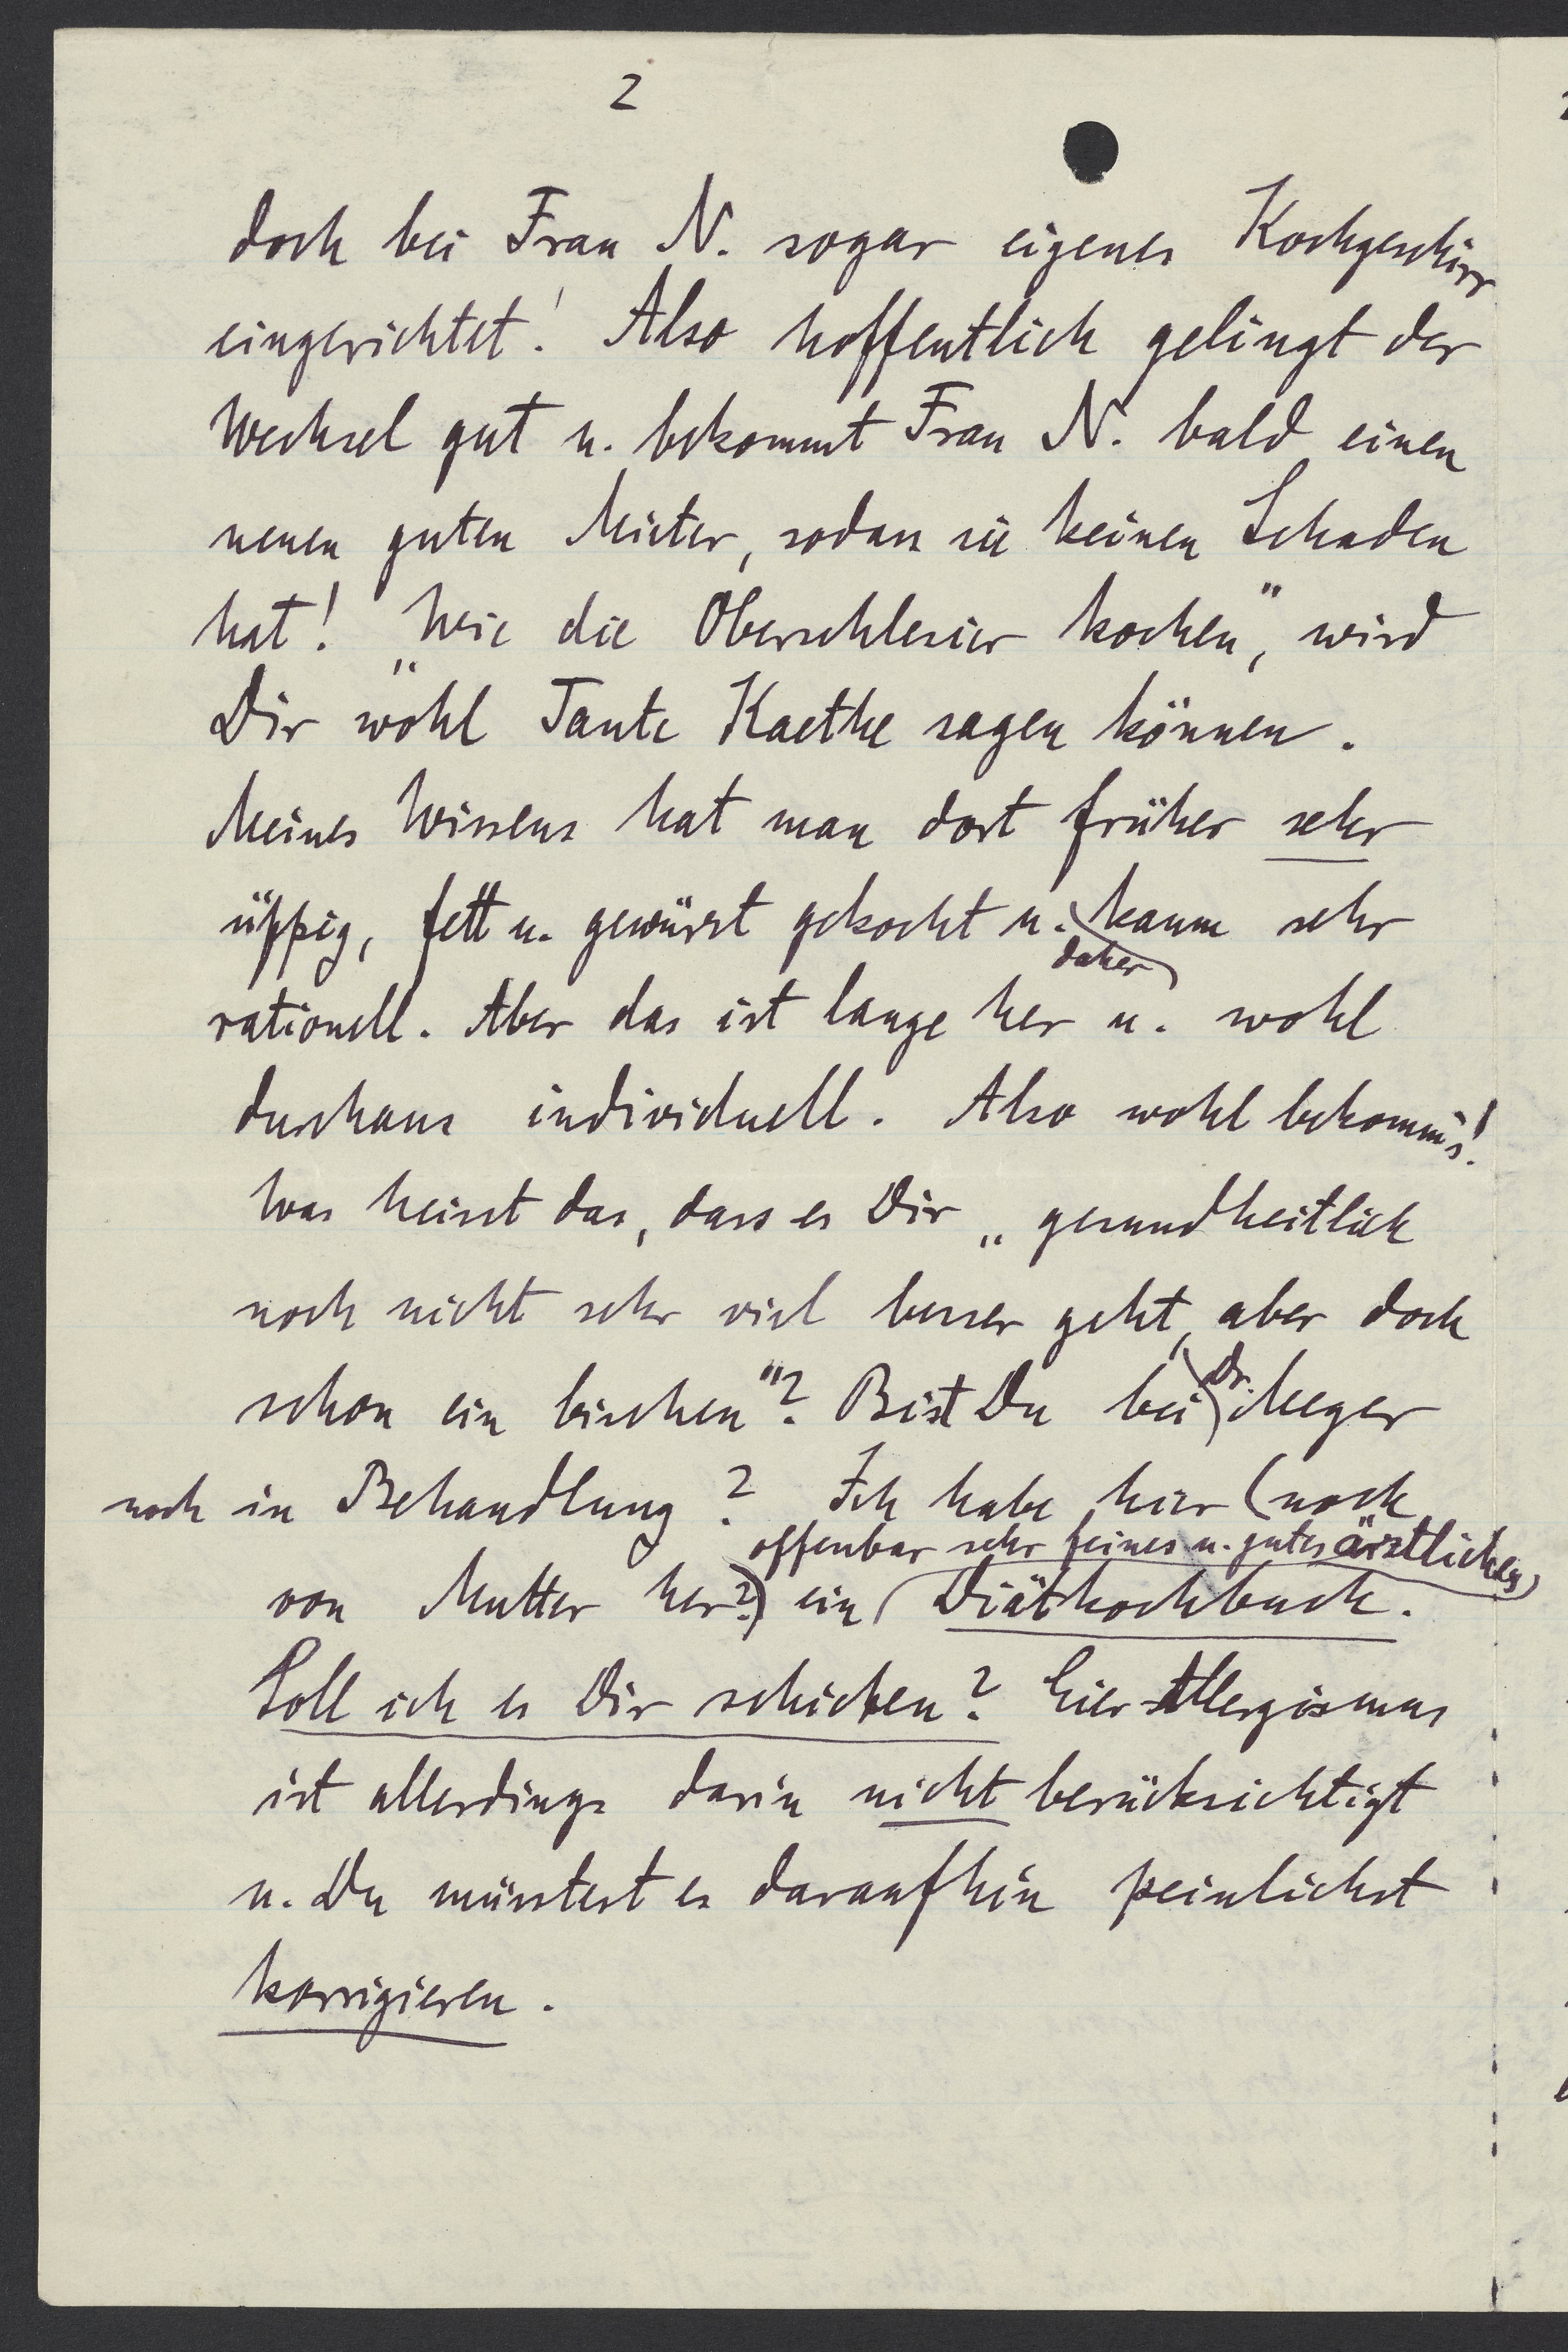 2
doch bei Frau N. sogar eigenes Kochgeschirr
eingerichtet! Also hoffentlich gelingt der
Wechsel gut u. bekommt Frau N. bald einen
neuen guten Mieter, sodass sie keinen Schaden
hat! „Wie die Oberschlesier kochen", wird
Dir wohl Tante Kaethe sagen können.
Meines Wissens hat man dort früher sehr
üppig, fett u. gewürzt gekocht u. kaum sehr
daher
rationell. Aber das ist lange her u. wohl
durchaus individuell. Also wohl bekomm's!
Was heisst das, dass es Dir „gesundheitlich
noch nicht sehr viel besser geht, aber doch
schon ein bischen"? Bist Du bei Dr. Meyer
noch in Behandlung? Ich habe hier (noch
offenbar sehr feines u. gutes ärztliches
von Mutter her?) ein Diätkochbuch.
Soll ich es Dir schicken? Eier-Allergismus
ist allerdings darin nicht berücksichtigt
u. Du müsstest es daraufhin peinlichst
korrigieren.